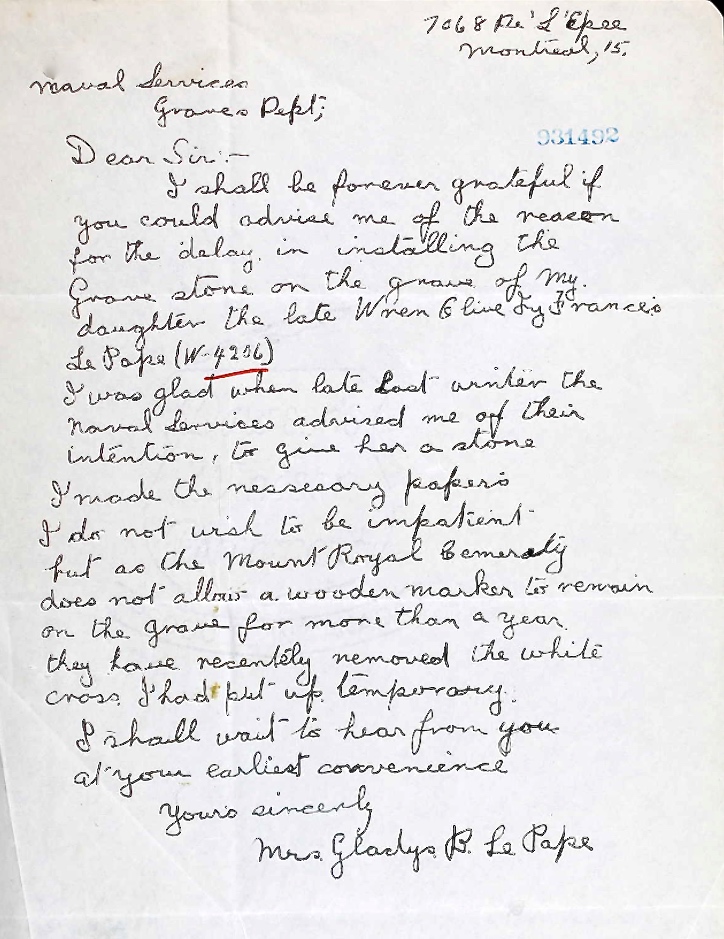 7068 De' L'Epee
Montreal, 15.
Naval Services
Graves Dept;
931492
Dear Sir:-
I shall be forever grateful if
you could advise me of the reason
for the delay in installing the
Grave stone on the grave of My
daughter the late Wren Olive Ivy Francis
Le Pape (W-4206)
I was glad when late last winter the
Naval Services advised me of their
intention, to give her a stone
I made the nessesary papers
I do not wish to be impatient
but as the Mount Royal Cemeraty
does not allow a wooden marker to remain
on the grave for more than a year
they have recentely removed the white
cross I had put up temporary.
I shall wait to hear from you
at your earliest convenience
Yours sincerly
Mrs. Gladys B. Le Pape